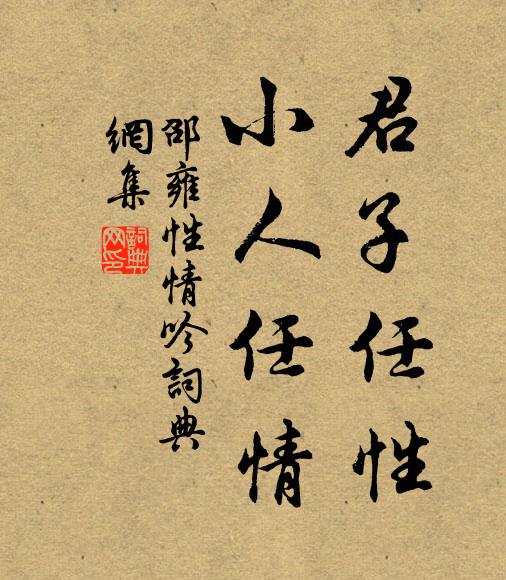 君子任性
小人任情
邵雍性情吟詞典
網集
詞典網印